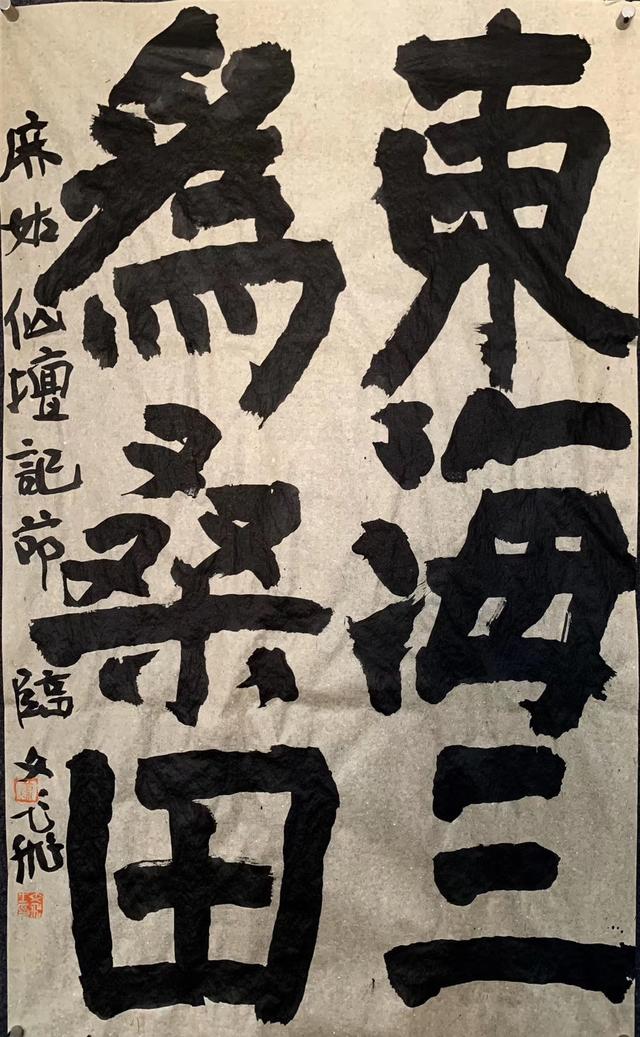 東海三
為桑田
麻姑仙壇記節 臨